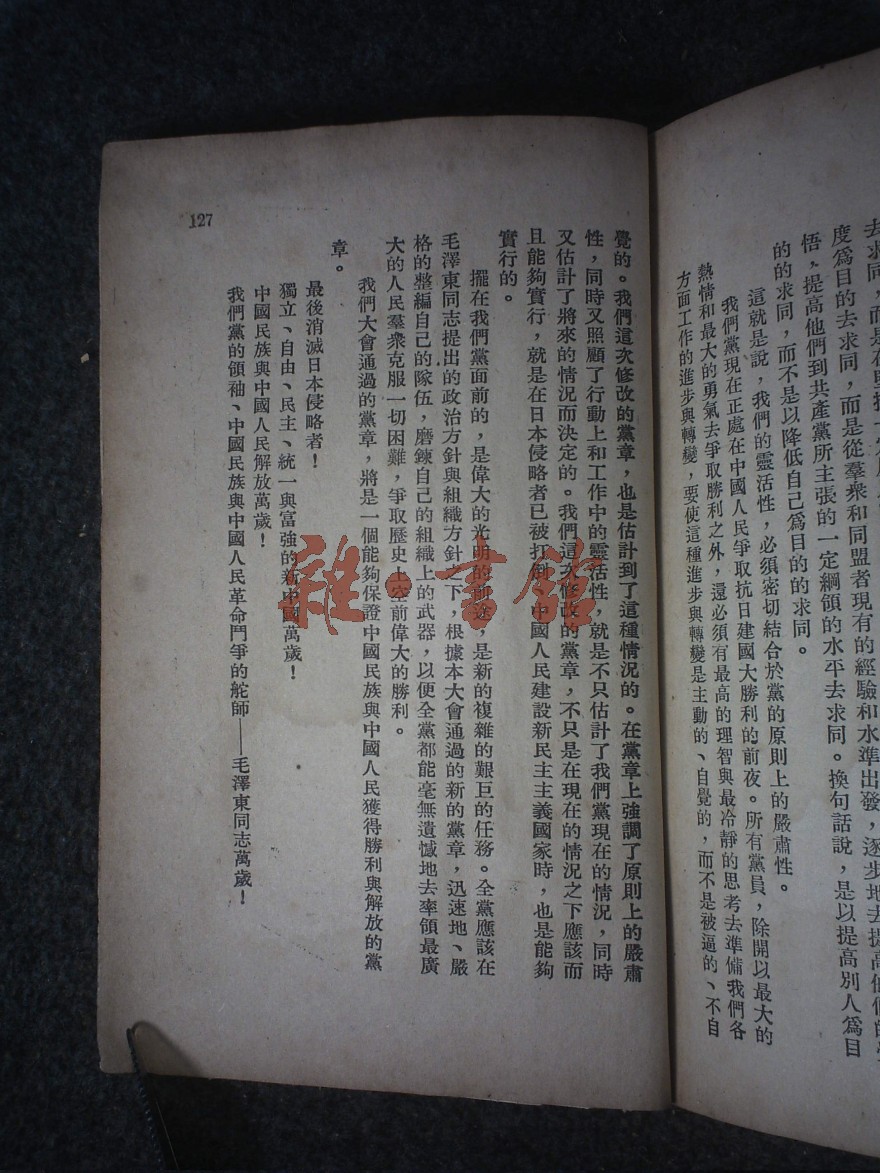 去求同,而是在堅持一定
度爲目的去求同,而是從羣衆和同盟者現有的經驗和水準出發,逐步地去提高他們的覺
悟,提高他們到共產黨所主張的一定綱領的水平去求同。換句話說,是以提高別人爲目
的的求同,而不是以降低自己爲目的的求同。
這就是說,我們的靈活性,必須密切結合於黨的原則上的嚴肅性。
我們黨現在正處在中國人民爭取抗日建國大勝利的前夜。所有黨員,除開以最大的
熱情和最大的勇氣去爭取勝利之外,還必須有最高的理智與最冷靜的思考去準備我們各
方面工作的進步與轉變,要使這種進步與轉變是主動的、自覺的,而不是被逼的、不自
覺的。我們這次修改的黨章,也是估計到了這種情況的。在黨章上強調了原則上的嚴肅
性,同時又照顧了行動上和工作中的靈活性,就是不只估計了我們黨現在的情況,同時
又估計了將來的情況而決定的。我們這次修改的黨章,不只是在現在的情況之下應該而
且能夠實行,就是在日本侵略者已被打倒,中國人民建設新民主主義國家時,也是能夠
實行的。
擺在我們黨面前的,是偉大的光明的前途,是新的複雜的艱巨的任務。全黨應該在
毛澤東同志提出的政治方針與組織方針之下,根據本大會通過的新的黨章,迅速地、嚴
格的整編自己的隊伍,磨鍊自己的組織上的武器,以便全黨都能毫無遺憾地去率領最廣
大的人民羣衆克服一切困難,爭取歷史上空前偉大的勝利。
我們大會通過的黨章,將是一個能夠保證中國民族與中國人民獲得勝利與解放的黨
章。
最後消滅日本侵略者!
獨立、自由、民主、統一與富強的新中國萬歲!
中國民族與中國人民解放萬歲!
我們黨的領袖、中國民族與中國人民革命鬥爭的舵師——毛澤東同志萬歲!
127
雜·書館